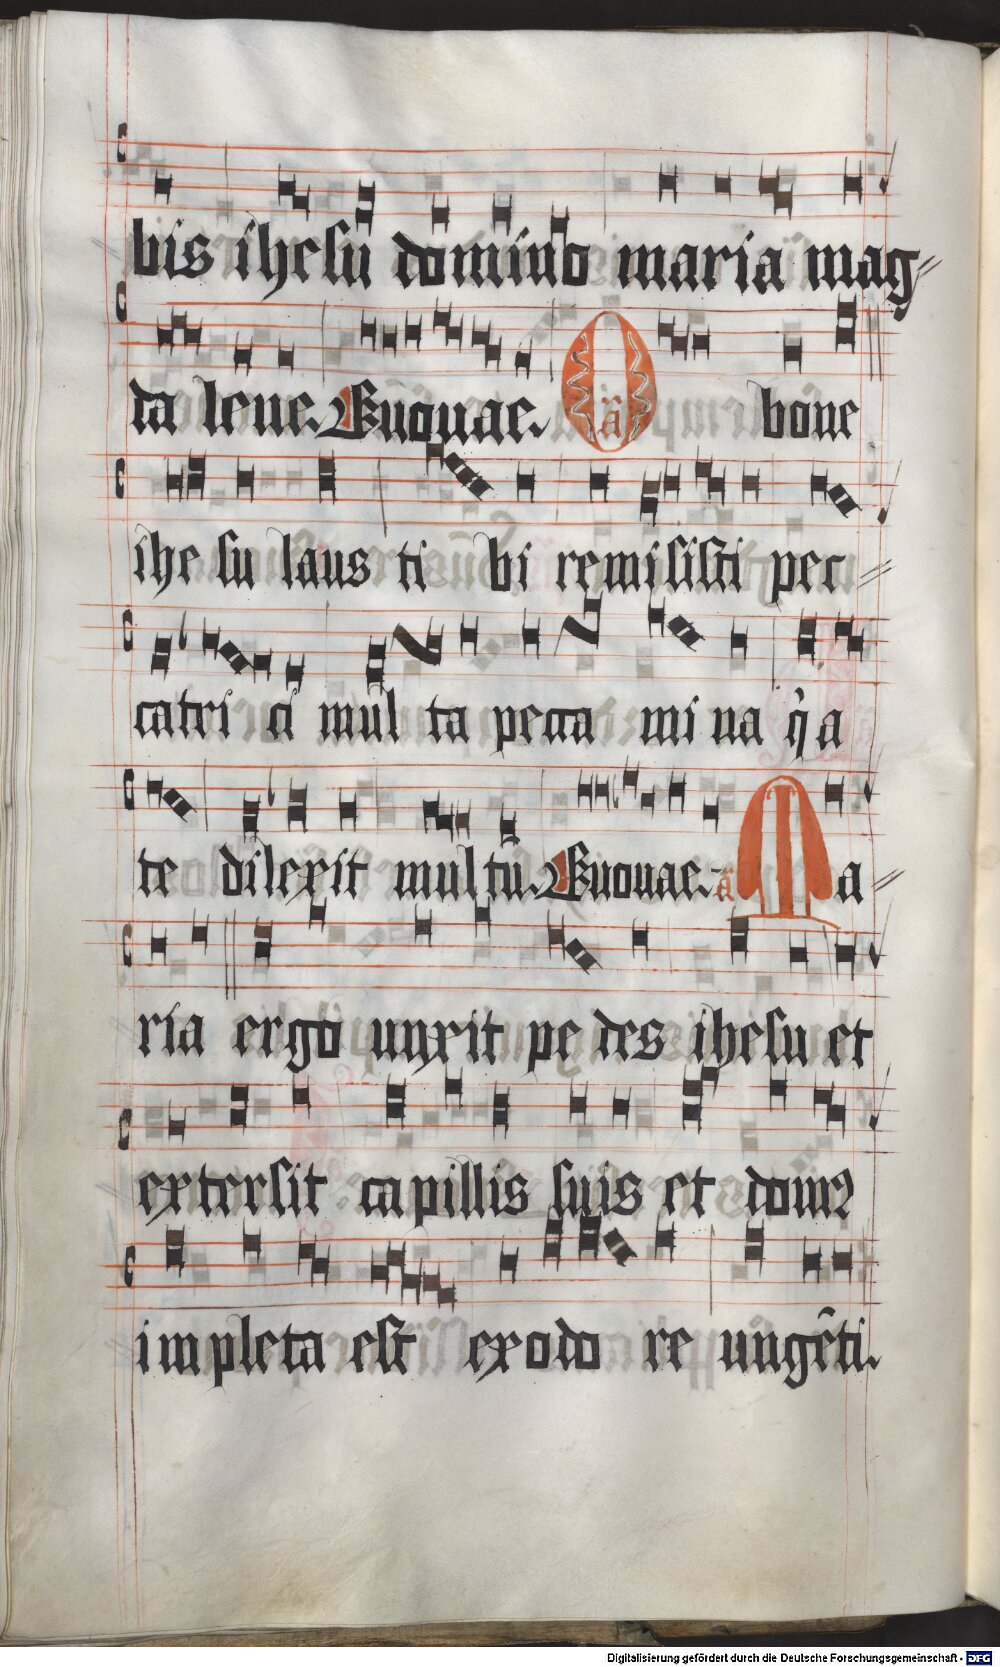 bis ihesu domino maria mag
da lene. Euouae. O añ bone
ihe su laus ti bi remisisti pec
catri ci mul ta pecca mi na q̃a
te dilexit multũ. Euouae. añ Ma
ria ergo unxit pe des ihesu et
extersit capillis suis et domꝰ
impleta est exodo re ungẽti.
Digitalisierung gefördert durch die Deutsche Forschungsgemeinschaft - DFG